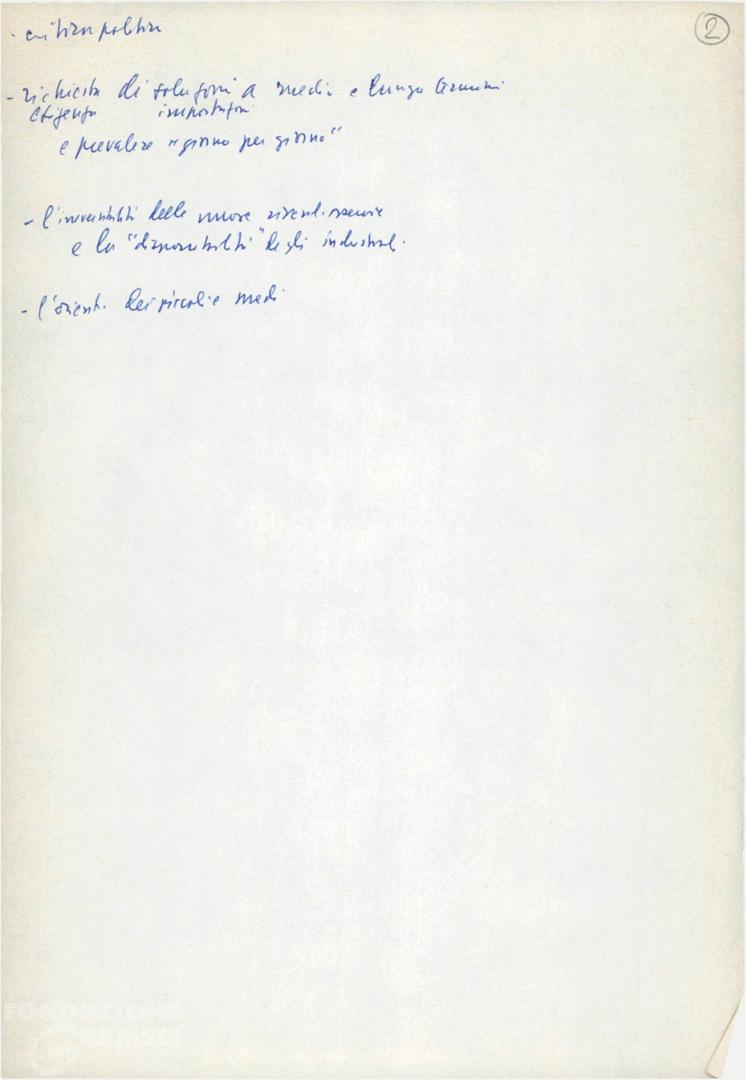 2
- critica politica
- richiesta di soluzioni a medio e lungo termini
esigenza impostazioni
e prevalere "giorno per giorno"
- l' delle nuove
e la "disponibilità" degli industrial.
- l'orient. dei piccoli e medi
FONDAZIONE
GRAMSCI